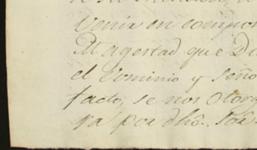 Venir en compon
Magestad que D
el Dominio y seño
facto, se nos otorg
rá por dho. Sõr